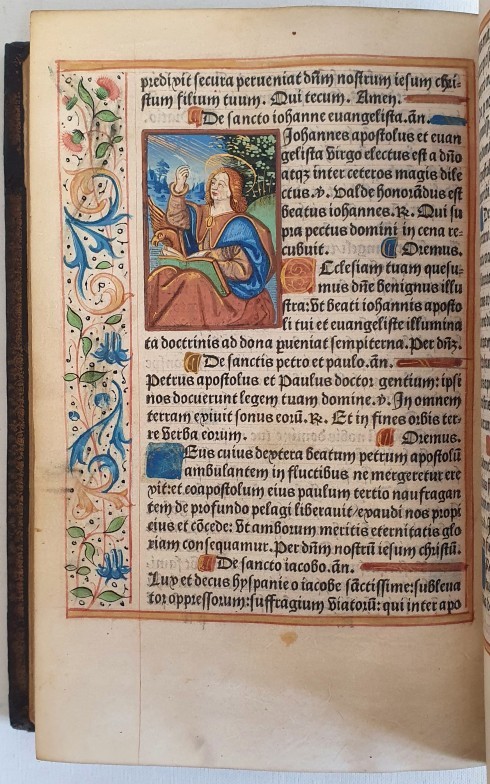 predixit secura perueniat dñm nostrum iesum chri-
stum filium tuum. Qui tecum. Amen.
De sancto iohanne euangelista. añ.
Johannes apostolus et euan
gelista virgo electus est a dño
atqꝫ inter ceteros magis dile
ctus. ꝟ. Valde honorãdus est
beatus iohannes. ℟. Qui su
pra pectus domini in cena re-
cubuit. Oremus.
Ecclesiam tuam quesu-
mus dñe benignus illu
stra: vt beati iohannis aposto
li tui et euangeliste illumina
ta doctrinis ad dona pueniat sempiterna. Per dñꝫ.
De sanctis petro et paulo. añ.
Petrus apostolus et Paulus doctor gentium: ipsi
nos docuerunt legem tuam domine. ꝟ. In omnem
terram exiuit sonus eorũ. ℟. Et in fines orbis ter-
re verba eorum. Oremus.
Deus cuius dextera beatum petrum apostolũ
ambulantem in fluctibus ne mergeretur ere
xit: et coapostolum eius paulum tertio naufragan
tem de profundo pelagi liberauit / exaudi nos propi
cius et cõcede: vt amborum meritis eternitatis glo
riam consequamur. Per dñm nostrũ iesum christũ.
De sancto iacobo. añ.
Lux et decus hyspanie o iacobe sãctissime: subleua
tor oppressorum: suffragium viatorũ: qui inter apo